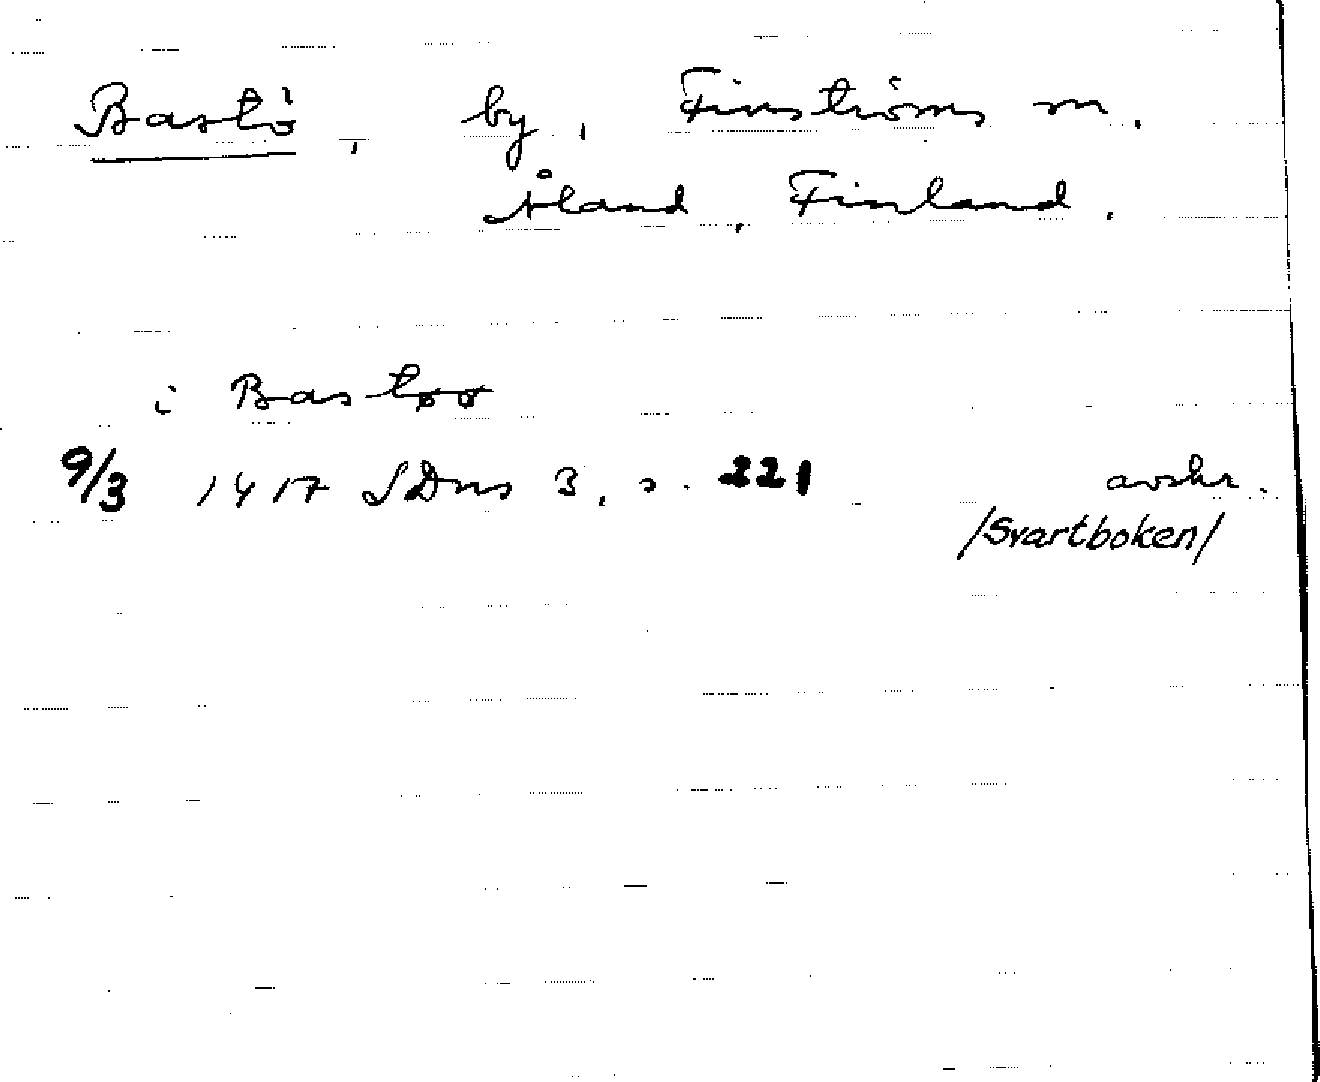 Bastö, by, Finströms sn.
Åland, Finland.
i Bastøø
9/3 1417 SDns 3, s. 221 avskr.
/Svartboken/